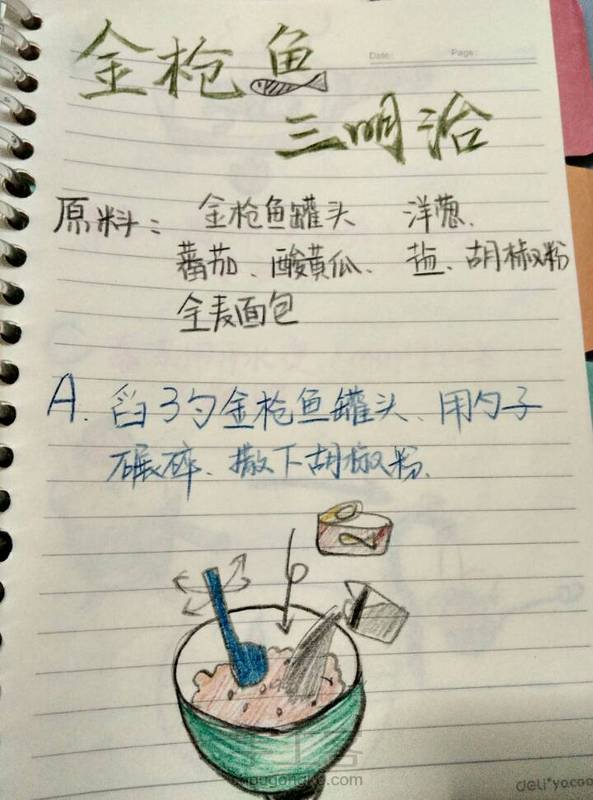 Date: Page:
金枪鱼
三明治
原料: 金枪鱼罐头 洋葱、
蕃茄、酸黄瓜、盐、胡椒粉
全麦面包
A. 舀3勺金枪鱼罐头、用勺子
碾碎、撒下胡椒粉、
手工客
shougongke.com
deli yocoo